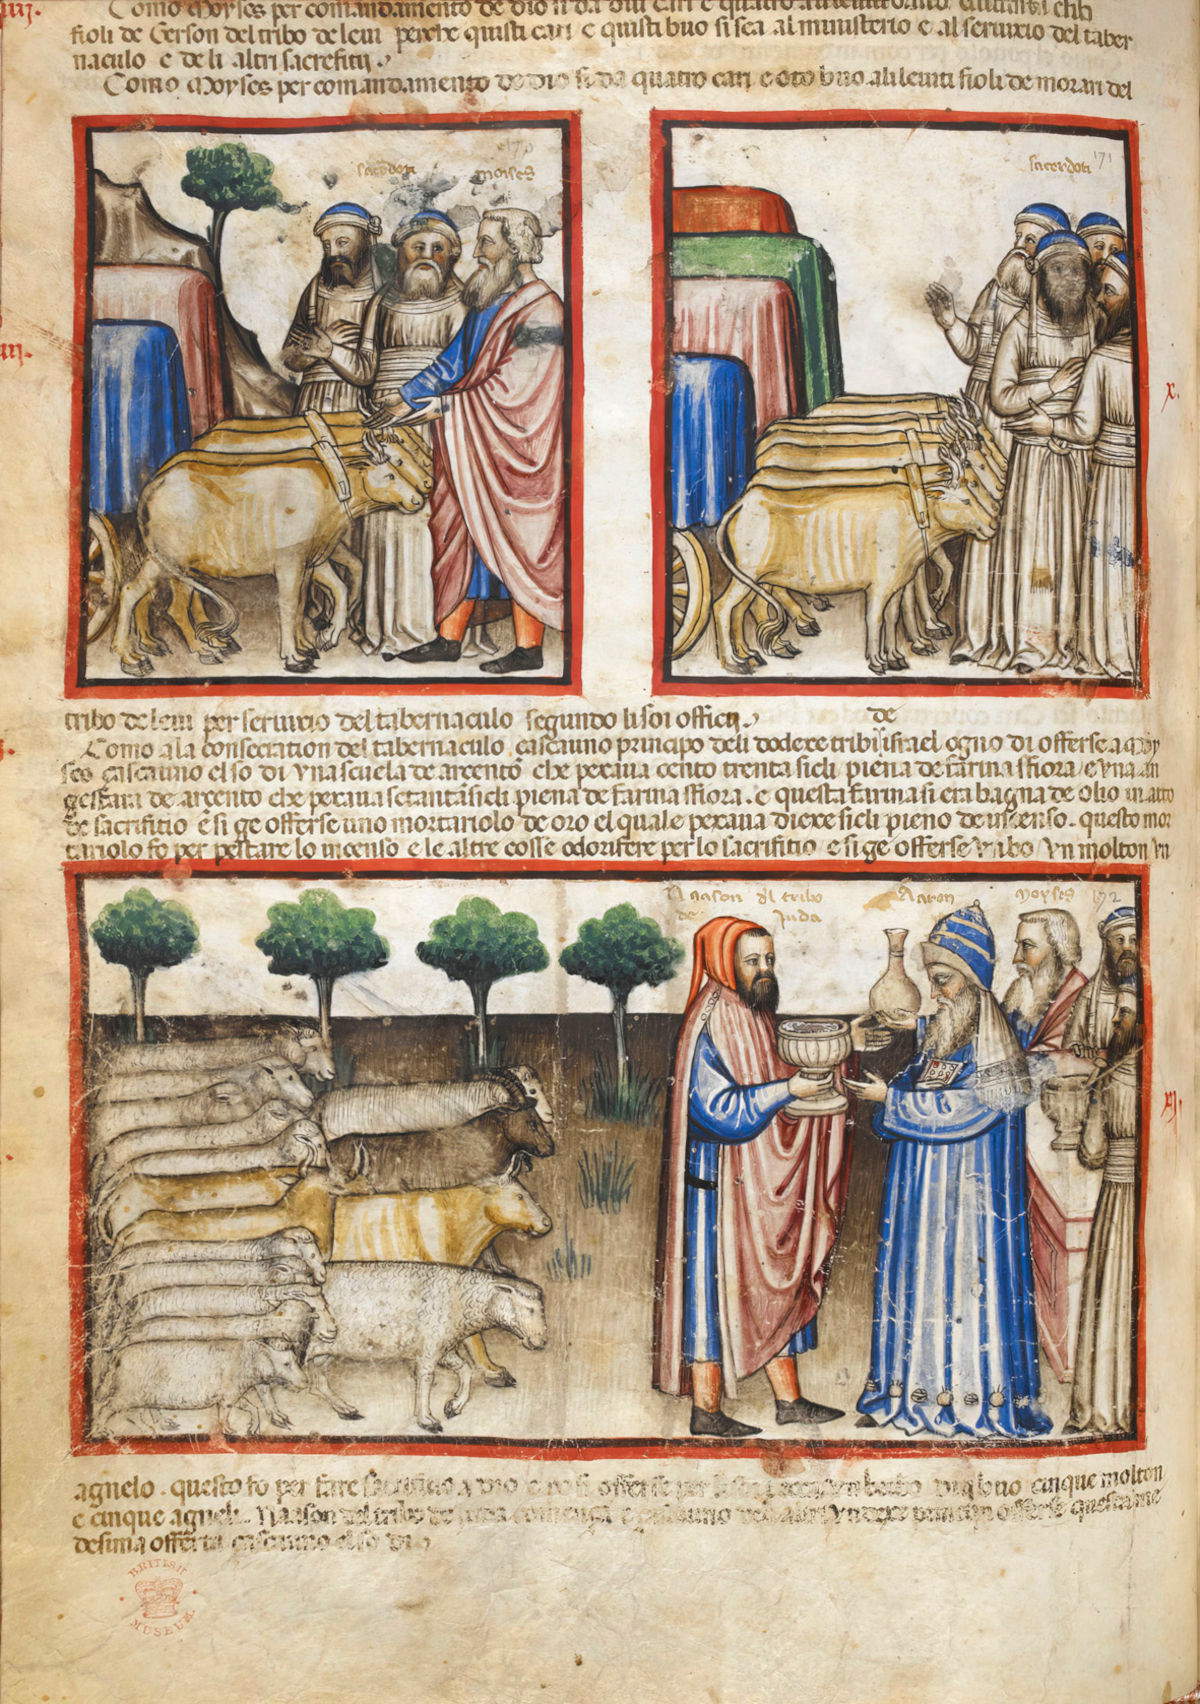 Como Moyses per comandamento de dio
fioli de Gerson del tribo de leui perche quisti cari e quisti buo si sea al ministerio e al seruixio del taber
naculo e de li altri sacrifitij.
Como Moyses per comandamento de dio si da quatro cari e oto buo ali leuiti fioli de morari del
sacerdoti moises
170
sacerdoti 171
tribo de leui per seruixio del tabernaculo segundo li soi officij.
de
Como a la consecration del tabernaculo cascauno principo deli dodexe tribi israel ogno di offerse a Moy
ses cascauno el so di vna scuela de arcento che pexaua cento trenta sicli piena de farina ffiora / e vna an
gestara de arcento che pexaua setanta sicli piena de farina ffiora. e questa farina si era bagna de olio in atto
de sacrifitio e si ge offerse uno mortariolo de oro el quale pexaua diexe sicli pieno de incenso. questo mor
tariolo fo per pestare lo incenso e le altre cosse odorifere per lo sacrifitio e si ge offerse vn bo / vn molton vn
Naason del tribo
de Juda
Aaron
Moyses 172
x.
xj.
agnelo. questo fo per fare sacrifitio a dio e cosi offerse per vn becho duy buo cinque molton
e cinque agneli. Naason del tribo de iuda començà e cascauno deli altri vndexe principi offerse questa me
desima offerta cascauno el so di.
BRITISH
MUSEUM